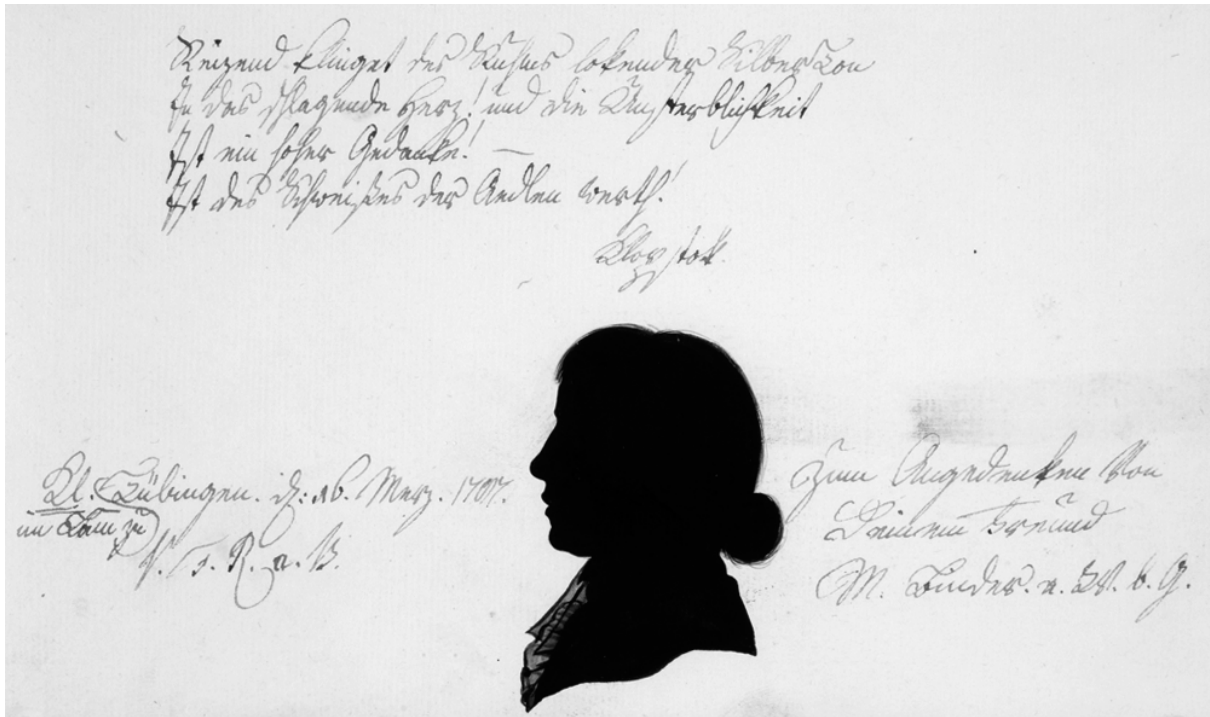 Reizend klinget des Ruhms lokender Silberton
In das schlagende Herz! und die Unsterblichkeit
Ist ein hoher Gedanke! —
Ist des Schweißes der Aedlen werth!
Klopstok.
Tübingen. d: 16. Merz.
im
V. F. R. a. B.
Zum Angedenken Von
Deinem Freund
M. Binder. a.